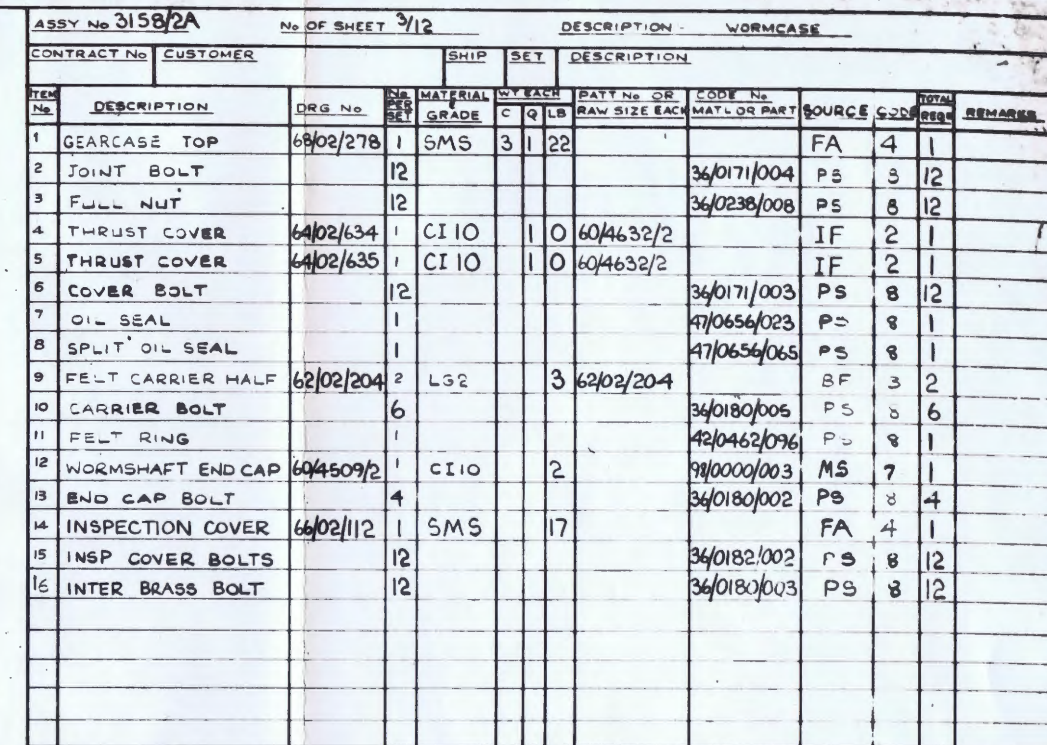 ASSY No 3158/2A No OF SHEET 3/12 DESCRIPTION - WORMCASE
CONTRACT No CUSTOMER SHIP SET DESCRIPTION
ITEM No DESCRIPTION DRG No No. PER SET MATERIAL & GRADE WT EACH C Q LB PATT No OR RAW SIZE EACH CODE No. MATL OR PART SOURCE CODE TOTAL REQD REMARKS
1 GEARCASE TOP 68/02/278 1 SMS 3 1 22 FA 4 1
2 JOINT BOLT 12 36/0171/004 PS 12
3 FULL NUT 12 36/0238/008 PS 8 12
4 THRUST COVER 64/02/634 1 CI 10 1 0 60/4632/2 IF 2 1
5 THRUST COVER 64/02/635 1 CI 10 1 0 60/4632/2 IF 2 1
6 COVER BOLT 12 36/0171/003 PS 8 12
7 OIL SEAL 1 47/0656/023 PS 8 1
8 SPLIT OIL SEAL 1 47/0656/065 PS 8 1
9 FELT CARRIER HALF 62/02/204 2 LG2 3 62/02/204 BF 3 2
10 CARRIER BOLT 6 36/0180/005 PS 8 6
11 FELT RING 1 42/0462/096 PS 8 1
12 WORMSHAFT END CAP 60/4509/2 1 CI10 2 98/0000/003 MS 7 1
13 END CAP BOLT 4 36/0180/002 PS 8 4
14 INSPECTION COVER 66/02/112 1 SMS 17 FA 4 1
15 INSP COVER BOLTS 12 36/0182/002 PS 8 12
16 INTER BRASS BOLT 12 36/0180/003 PS 8 12